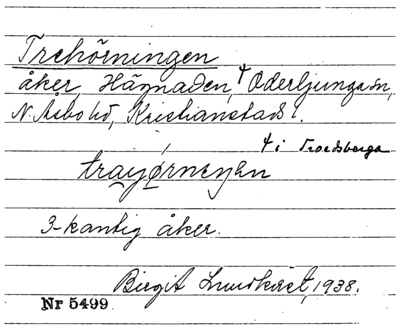 Trehörningen
åker, Hägnaden, ┼ Oderljunga sn,
N. Åsbo hd, Kristianstads l.
┼ i Troedsberga
3-kantig åker.
Birgit Lundkvist, 1938.
Nr 5499